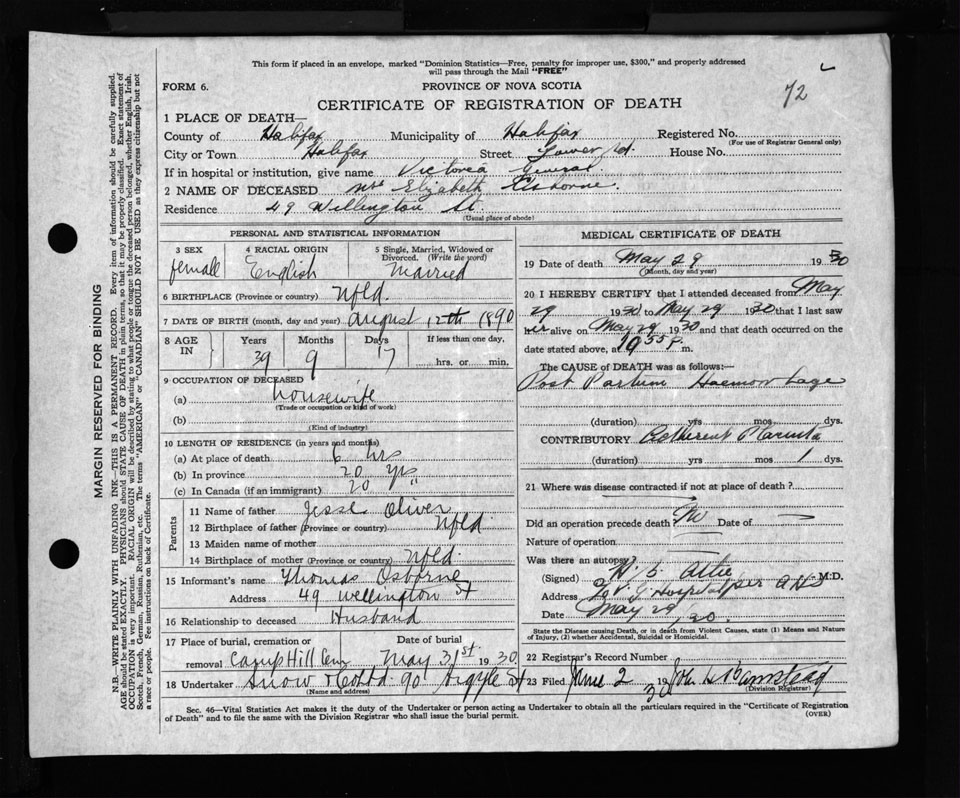 This form if placed in an envelope, marked "Dominion Statistics—Free, penalty for improper use, $300," and properly addressed
will pass through the Mail "FREE"
72
FORM 6.
PROVINCE OF NOVA SCOTIA
CERTIFICATE OF REGISTRATION OF DEATH
1 PLACE OF DEATH—
County of Halifax Municipality of Halifax Registered No.
(For use of Registrar General only)
City or Town Halifax Street House No.
If in hospital or institution, give name Victoria General
2 NAME OF DECEASED Mrs Elizabeth Osborne.
Residence 49 Wellington St.
(Usual place of abode)
PERSONAL AND STATISTICAL INFORMATION
3 SEX
female
4 RACIAL ORIGIN
English
5 Single, Married, Widowed or
Divorced. (Write the word)
Married
6 BIRTHPLACE (Province or country) Nfld.
7 DATE OF BIRTH (month, day and year) August 12th 1890
8 AGE IN
Years Months Days If less than one day,
39 9 17 hrs. or min.
9 OCCUPATION OF DECEASED
(a) housewife
(Trade or occupation or kind of work)
(b)
(Kind of industry)
10 LENGTH OF RESIDENCE (in years and months)
(a) At place of death 6 hrs
(b) In province 20 yrs
(c) In Canada (if an immigrant) 20 "
Parents
11 Name of father Jesse Oliver
12 Birthplace of father (Province or country) Nfld
13 Maiden name of mother
14 Birthplace of mother (Province or country) Nfld.
15 Informant's name Thomas Osborne
Address 49 Wellington St
16 Relationship to deceased Husband
17 Place of burial, cremation or Date of burial
removal Camp Hill Cem May 31st 1930.
18 Undertaker Snow & Co Ltd 90 Argyle St
(Name and address)
MEDICAL CERTIFICATE OF DEATH
19 Date of death May 29 1930
(Month, day and year)
20 I HEREBY CERTIFY that I attended deceased from May
29 1930 to May 29 1930 that I last saw
her alive on May 29 1930 and that death occurred on the
date stated above, at 9 55 P. m.
The CAUSE of DEATH was as follows:—
Post Partum Haemorrhage
(duration) yrs mos dys.
CONTRIBUTORY Adherent Placenta
(duration) yrs mos 1 dys.
21 Where was disease contracted if not at place of death?
Did an operation precede death? No Date of
Nature of operation
Was there an autopsy?
(Signed) M.D.
Address V. G. Hospital
Date May 29 30.
State the Disease causing Death, or in death from Violent Causes, state (1) Means and Nature
of Injury, (2) whether Accidental, Suicidal or Homicidal.
22 Registrar's Record Number
23 Filed June 2 1930
(Division Registrar)
Sec. 46—Vital Statistics Act makes it the duty of the Undertaker or person acting as Undertaker to obtain all the particulars required in the "Certificate of Registration
of Death" and to file the same with the Division Registrar who shall issue the burial permit.
(OVER)
MARGIN RESERVED FOR BINDING
N.B.—WRITE PLAINLY WITH UNFADING INK—THIS IS A PERMANENT RECORD. Every item of information should be carefully supplied.
AGE should be stated EXACTLY. PHYSICIANS should STATE CAUSE OF DEATH in plain terms, so that it may be properly classified. Exact statement of
OCCUPATION is very important. RACIAL ORIGIN will be described by stating to what people or tongue the deceased person belonged, whether English, Irish,
Scotch, French, German, Russian, Ruthenian, etc. The terms "AMERICAN" or "CANADIAN" SHOULD NOT BE USED as they express citizenship but not
a race or people. Fee instructions on back of Certificate.